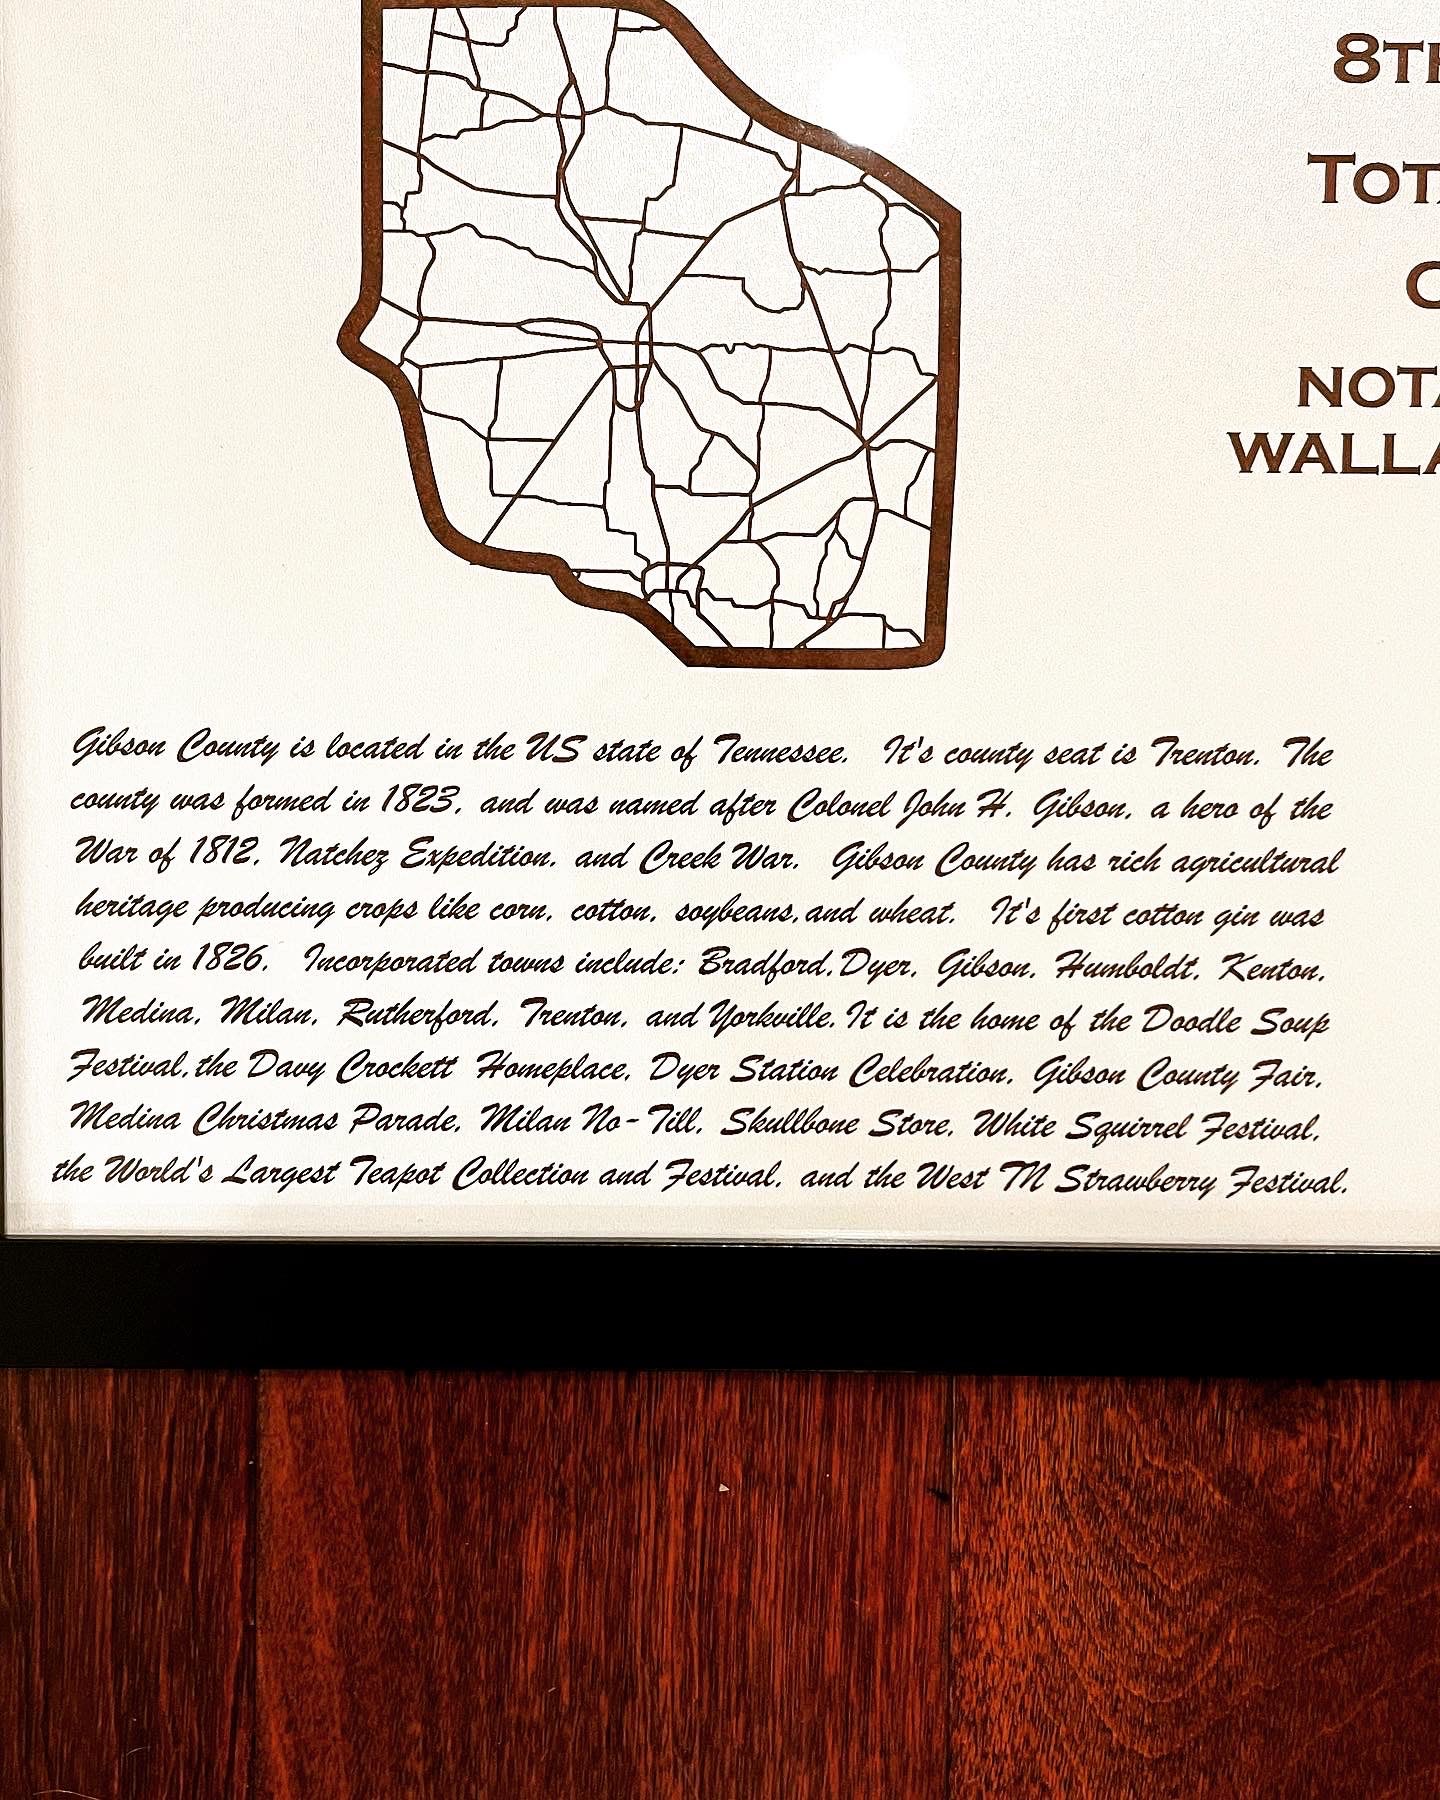 8TH
TOTA
NOTA
WALLA
Gibson County is located in the US state of Tennessee. It's county seat is Trenton. The
county was formed in 1823, and was named after Colonel John H. Gibson, a hero of the
War of 1812, Natchez Expedition, and Creek War. Gibson County has rich agricultural
heritage producing crops like corn, cotton, soybeans, and wheat. It's first cotton gin was
built in 1826. Incorporated towns include: Bradford, Dyer, Gibson, Humboldt, Kenton,
Medina, Milan, Rutherford, Trenton, and Yorkville. It is the home of the Doodle Soup
Festival, the Davy Crockett Homeplace, Dyer Station Celebration, Gibson County Fair,
Medina Christmas Parade, Milan No-Till, Skullbone Store, White Squirrel Festival,
the World's Largest Teapot Collection and Festival, and the West TN Strawberry Festival.